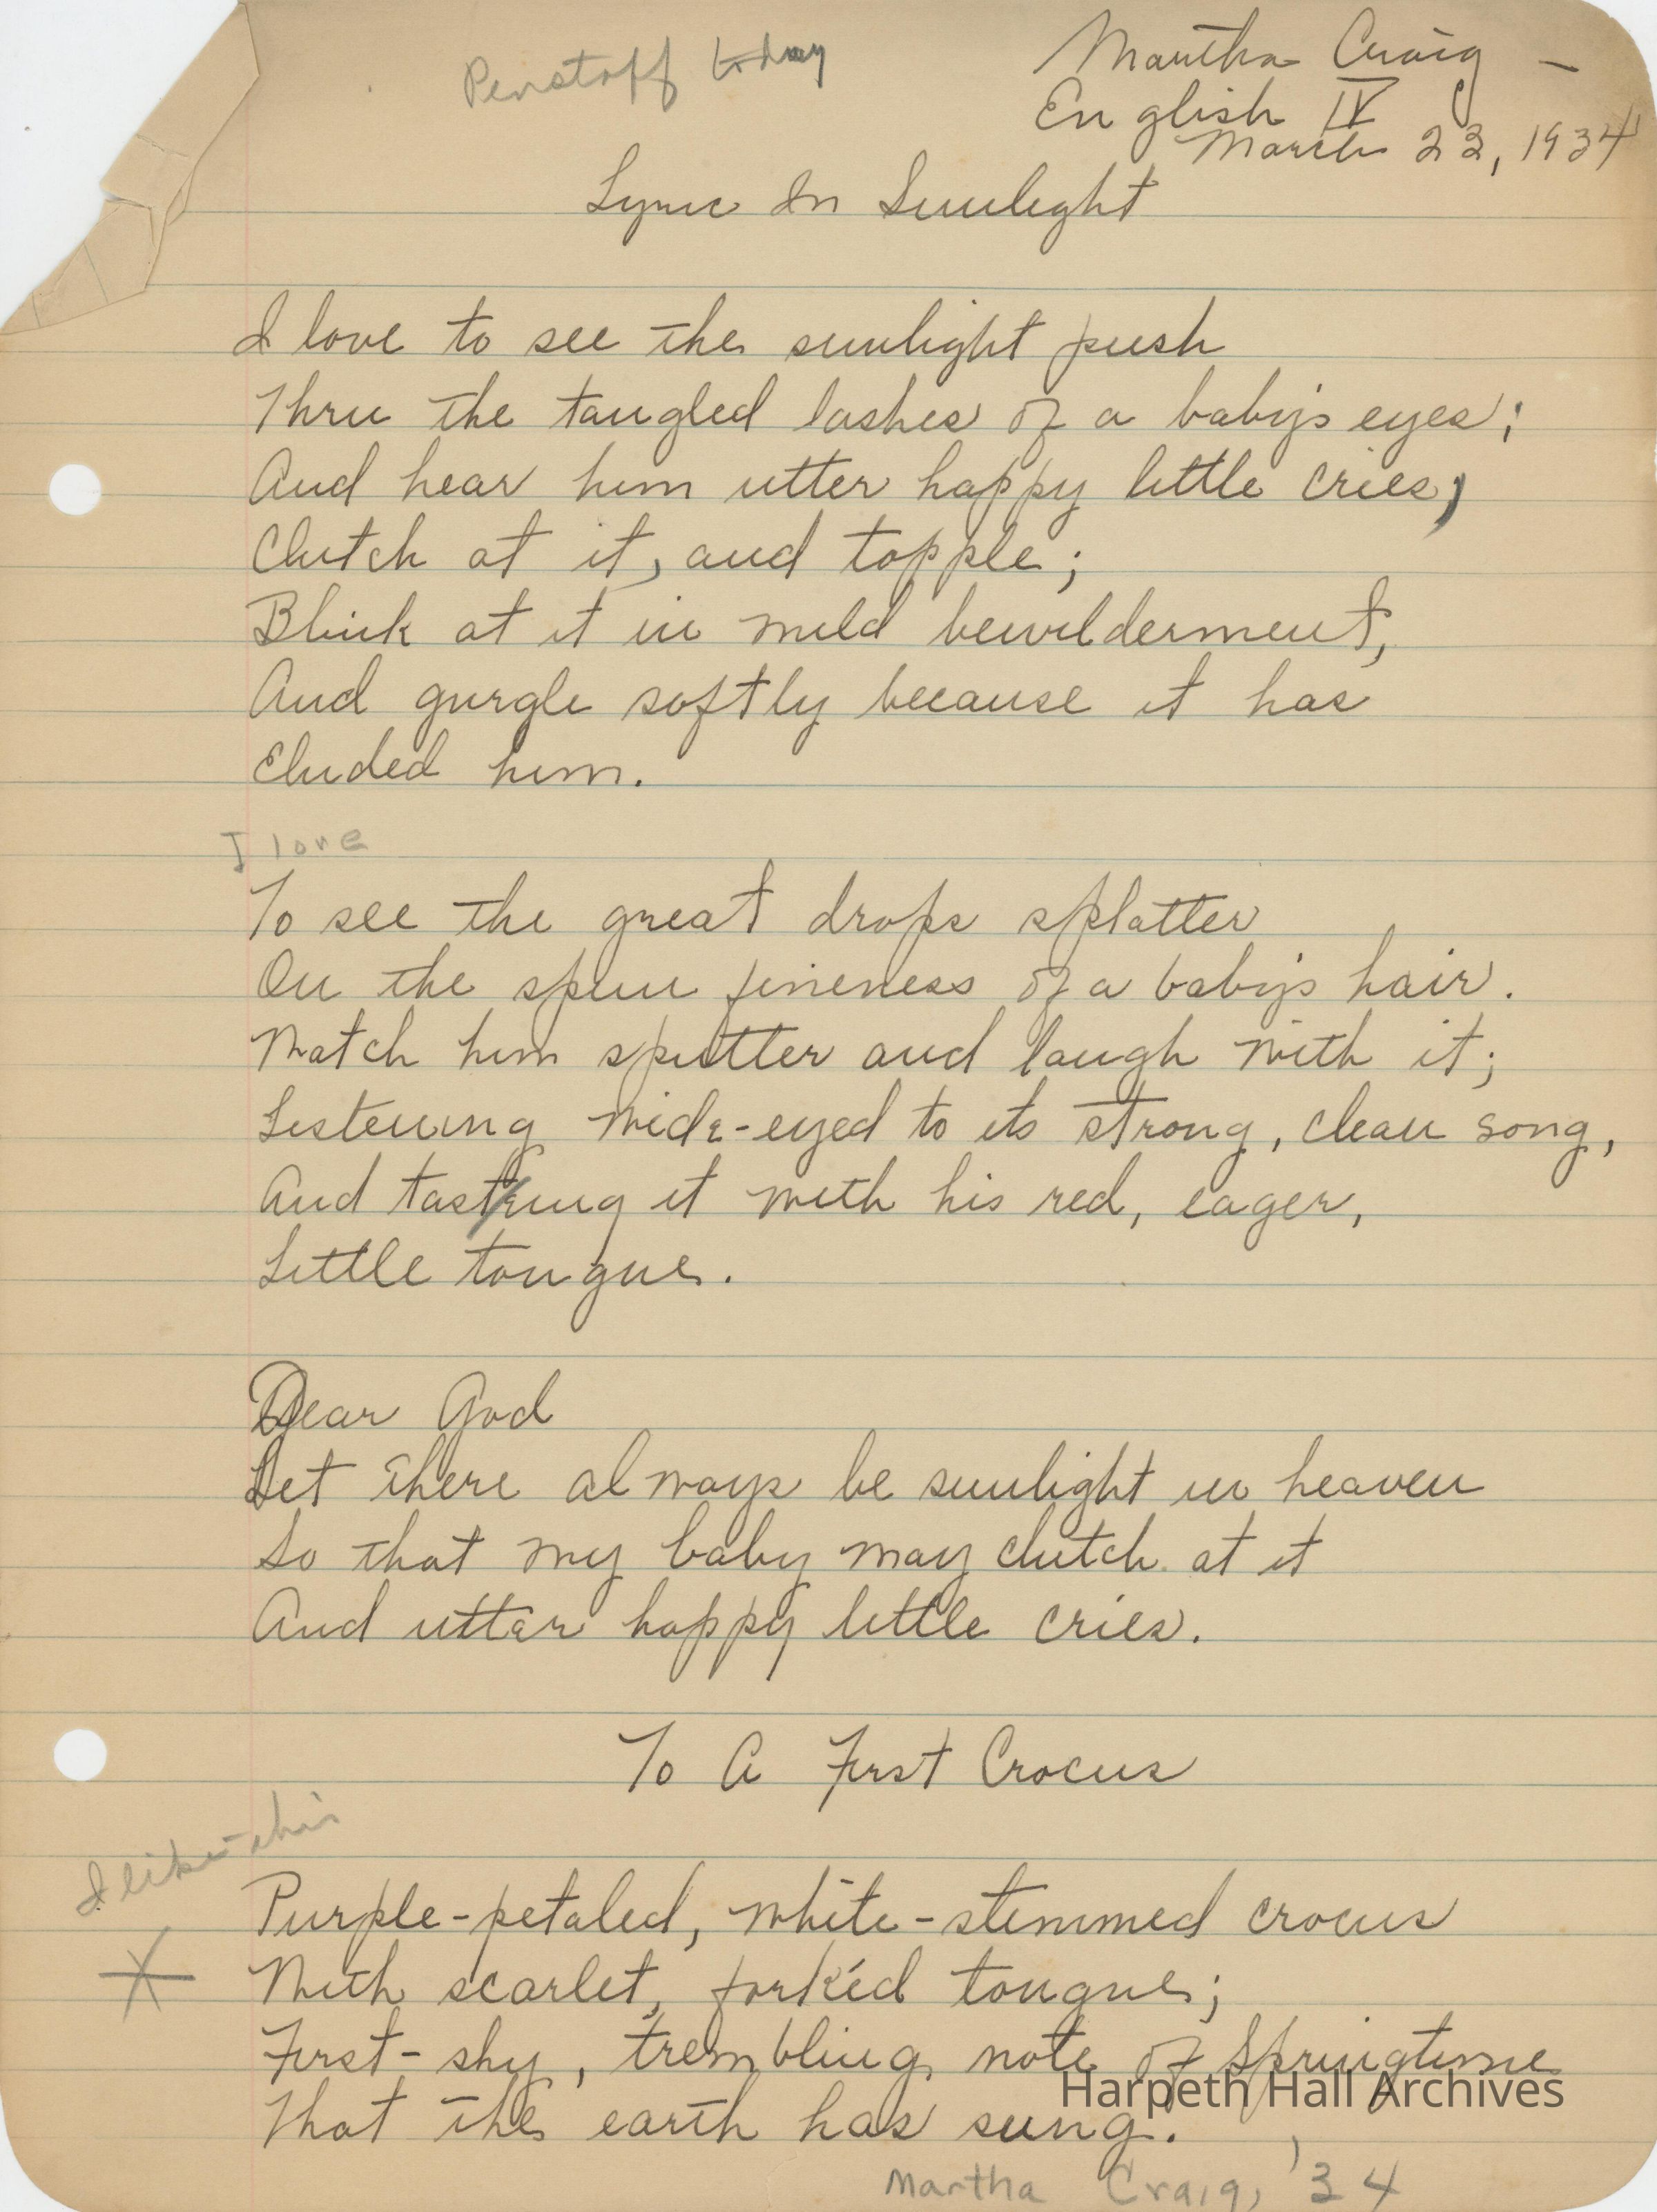 Penstaff today
Martha Craig –
English IV
March 23, 1934
Lyric In Sunlight
I love to see the sunlight push
Thru the tangled lashes of a baby's eyes;
And hear him utter happy little cries,
Clutch at it, and topple;
Blink at it in mild bewilderment,
And gurgle softly because it has
Eluded him.
I love
To see the great drops splatter
On the spun fineness of a baby's hair.
Watch him sputter and laugh with it;
Listening wide-eyed to its strong, clean song,
And tasting it with his red, eager,
Little tongue.
Dear God
Let there always be sunlight in heaven
So that my baby may clutch at it
And utter happy little cries.
To A First Crocus
I like this
Purple-petaled, white-stemmed crocus
With scarlet, forkéd tongue;
First- shy, trembling note of Springtime
That the earth has sung.
Harpeth Hall Archives
Martha Craig, '34